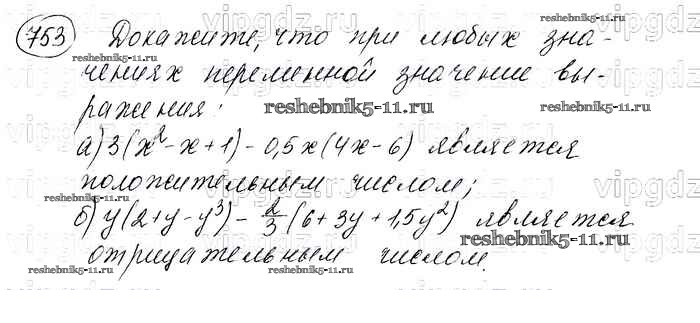 753 Докажите, что при любых зна-
чениях переменной значение вы-
ражения:
а) 3(x² - x + 1) - 0,5x(4x - 6) является
положительным числом;
б) y(2 + y - y³) - 2/3(6 + 3y + 1,5y²) является
отрицательным числом.
reshebnik5-11.ru
reshebnik5-11.ru
reshebnik5-11.ru
reshebnik5-11.ru
reshebnik5-11.ru
reshebnik5-11.ru
reshebnik5-11.ru
vipgdz
vipgdz
vipgdz
vipgdz